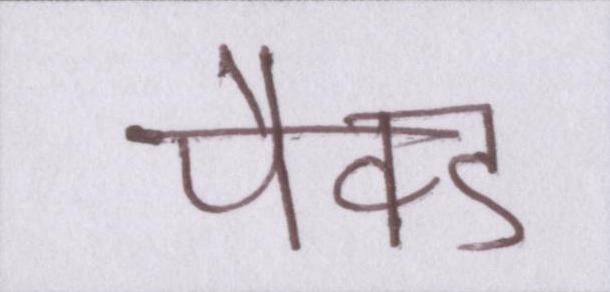 पैक्ड